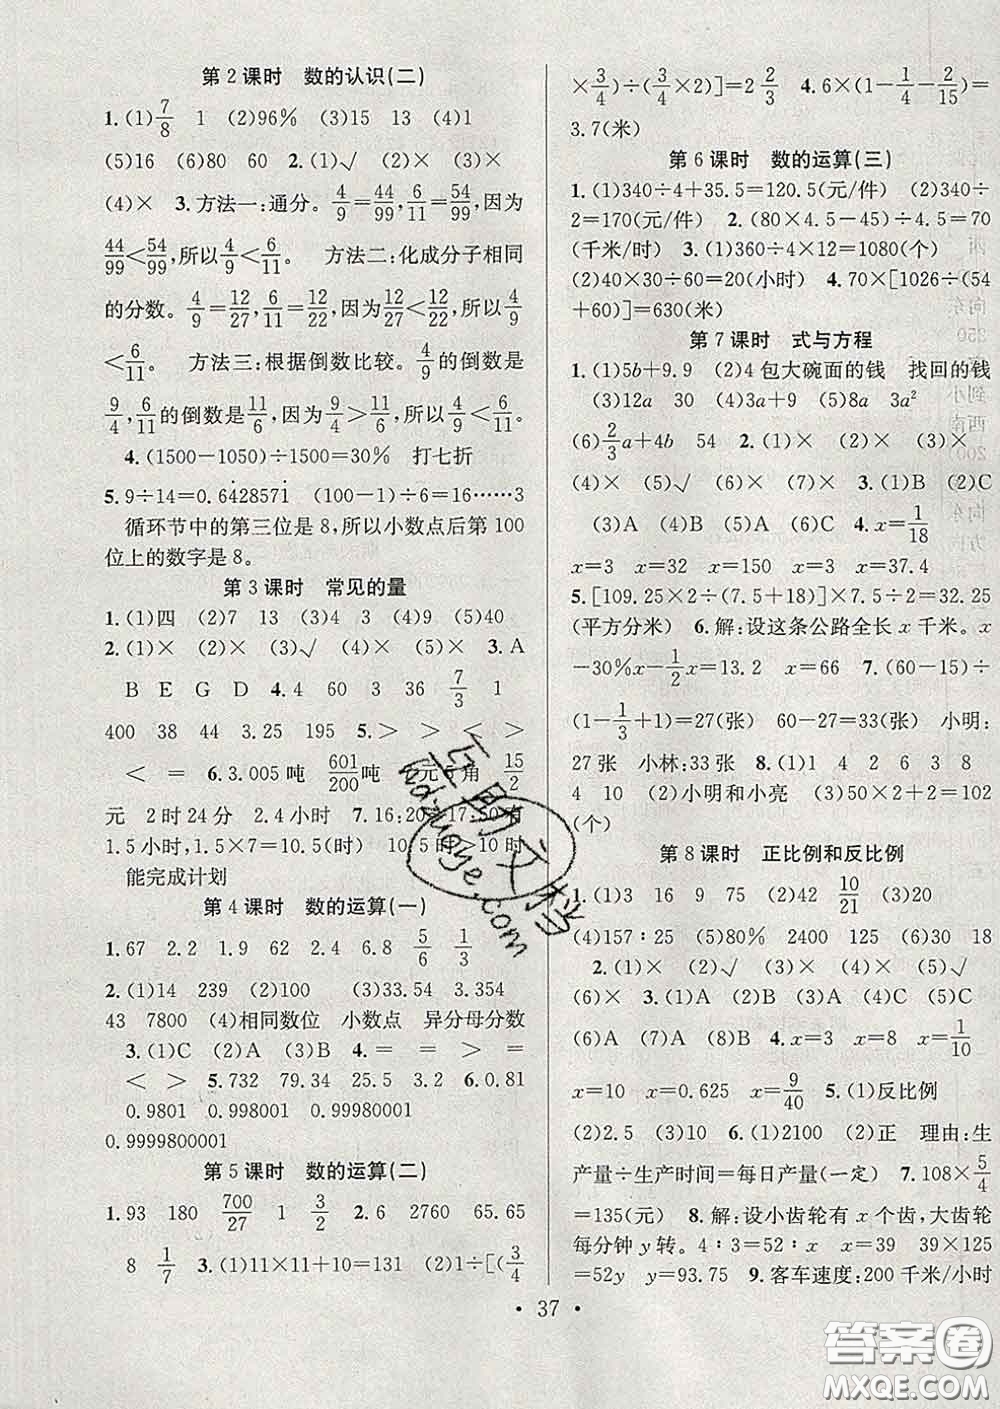 第 2 课时　数的认识(二)
1.(1)7/8　1　(2)96%　(3)15　13　(4)1
(5)16　(6)80　60　2.(1)√　(2)×　(3)×
(4)×　3.方法一:通分。4/9=44/99,6/11=54/99,因为
44/99<54/99,所以4/9<6/11。　方法二:化成分子相同
的分数。4/9=12/27,6/11=12/22,因为12/27<12/22,所以4/9
<6/11。　方法三:根据倒数比较。4/9的倒数是
9/4,6/11的倒数是11/6,因为9/4>11/6,所以4/9<6/11。
4.(1500-1050)÷1500=30%　打七折
5.9÷14=0.64̇28571̇　(100-1)÷6=16……3
循环节中的第三位是8,所以小数点后第100
位上的数字是8。
第 3 课时　常见的量
1.(1)四　(2)7　(3)4　3　(4)9　(5)40
2.(1)×　(2)×　(3)√　(4)×　(5)×　3.A
B　E　G　D　4.4　60　3　36　7/3　1
400　38　44　3.25　195　5.>　>　<　>
<　=　6.3.005吨　601/200吨　元　角　15/2
元　2时24分　2.4小时　7.16:20　17:50有
1.5小时,1.5×7=10.5(时)　10.5时>10时
能完成计划
第 4 课时　数的运算(一)
1.67　2.2　1.9　62　2.4　6.8　5/6　1/3
2.(1)14　239　(2)100　(3)33.54　3.354
43　7800　(4)相同数位　小数点　异分母分数
3.(1)C　(2)A　(3)B　4.=　=　>　=
<　>　5.732　79.34　25.5　3.2　6.0.81
0.9801　0.998001　0.99980001
0.9999800001
第 5 课时　数的运算(二)
1.93　180　700/27　1　3/2　2.6　2760　65.65
8　1/7　3.(1)11×11+10=131　(2)1÷[(3/4
×3/4)÷(3/4×2)]=2 2/3　4.6×(1-1/4-2/15)=
3.7(米)
第 6 课时　数的运算(三)
1.(1)340÷4+35.5=120.5(元/件)　(2)340÷
2=170(元/件)　2.(80×4.5-45)÷4.5=70
(千米/时)　3.(1)360÷4×12=1080(个)
(2)40×30÷60=20(小时)　4.70×[1026÷(54
+60)]=630(米)
第 7 课时　式与方程
1.(1)5b+9.9　(2)4包大碗面的钱　找回的钱
(3)12a　30　(4)3a+9　(5)8a　3a²
(6)2/3a+4b　54　2.(1)×　(2)×　(3)×
(4)×　(5)√　(6)×　(7)×　3.(1)B　(2)C
(3)A　(4)B　(5)A　4.x=1/18
x=3　x=32　x=150　x=3　x=37.4
5.[109.25×2÷(7.5+18)]×7.5÷2=32.25
(平方分米)　6.解:设这条公路全长x千米。x
-30%x-1/2x=13.2　x=66　7.(60-15)÷
(1-1/3+1)=27(张)　60-27=33(张)　小明:
27张　小林:33张　8.(1)1　4　2　6　3　8
4　10　(2)小明和小亮　(3)50×2+2=102
(个)
第 8 课时　正比例和反比例
1.(1)3　16　9　75　(2)42　10/21　(3)20
(4)157∶25　(5)80%　2400　125　(6)30　18
2.(1)×　(2)√　(3)×　(4)×　(5)√
(6)×　3.(1)B　(2)B　(3)A　(4)C　(5)C
(6)A　(7)A　(8)B　4.x=3　x=1/10
x=10　x=0.625　x=9/40　5.(1)反比例
(2)2.5　(3)10　6.(1)2100　(2)正　理由:生
产量÷生产时间=每日产量(一定)　7.108×5/4
=135(元)　8.解:设小齿轮有x个齿,大齿轮
每分钟y转。4∶3=52∶x　x=39　39×125
=52y　y=93.75　9.客车速度:200千米/小时
• 37 •
互助文档
hdzuoye.com
答案圈
MXQE.COM